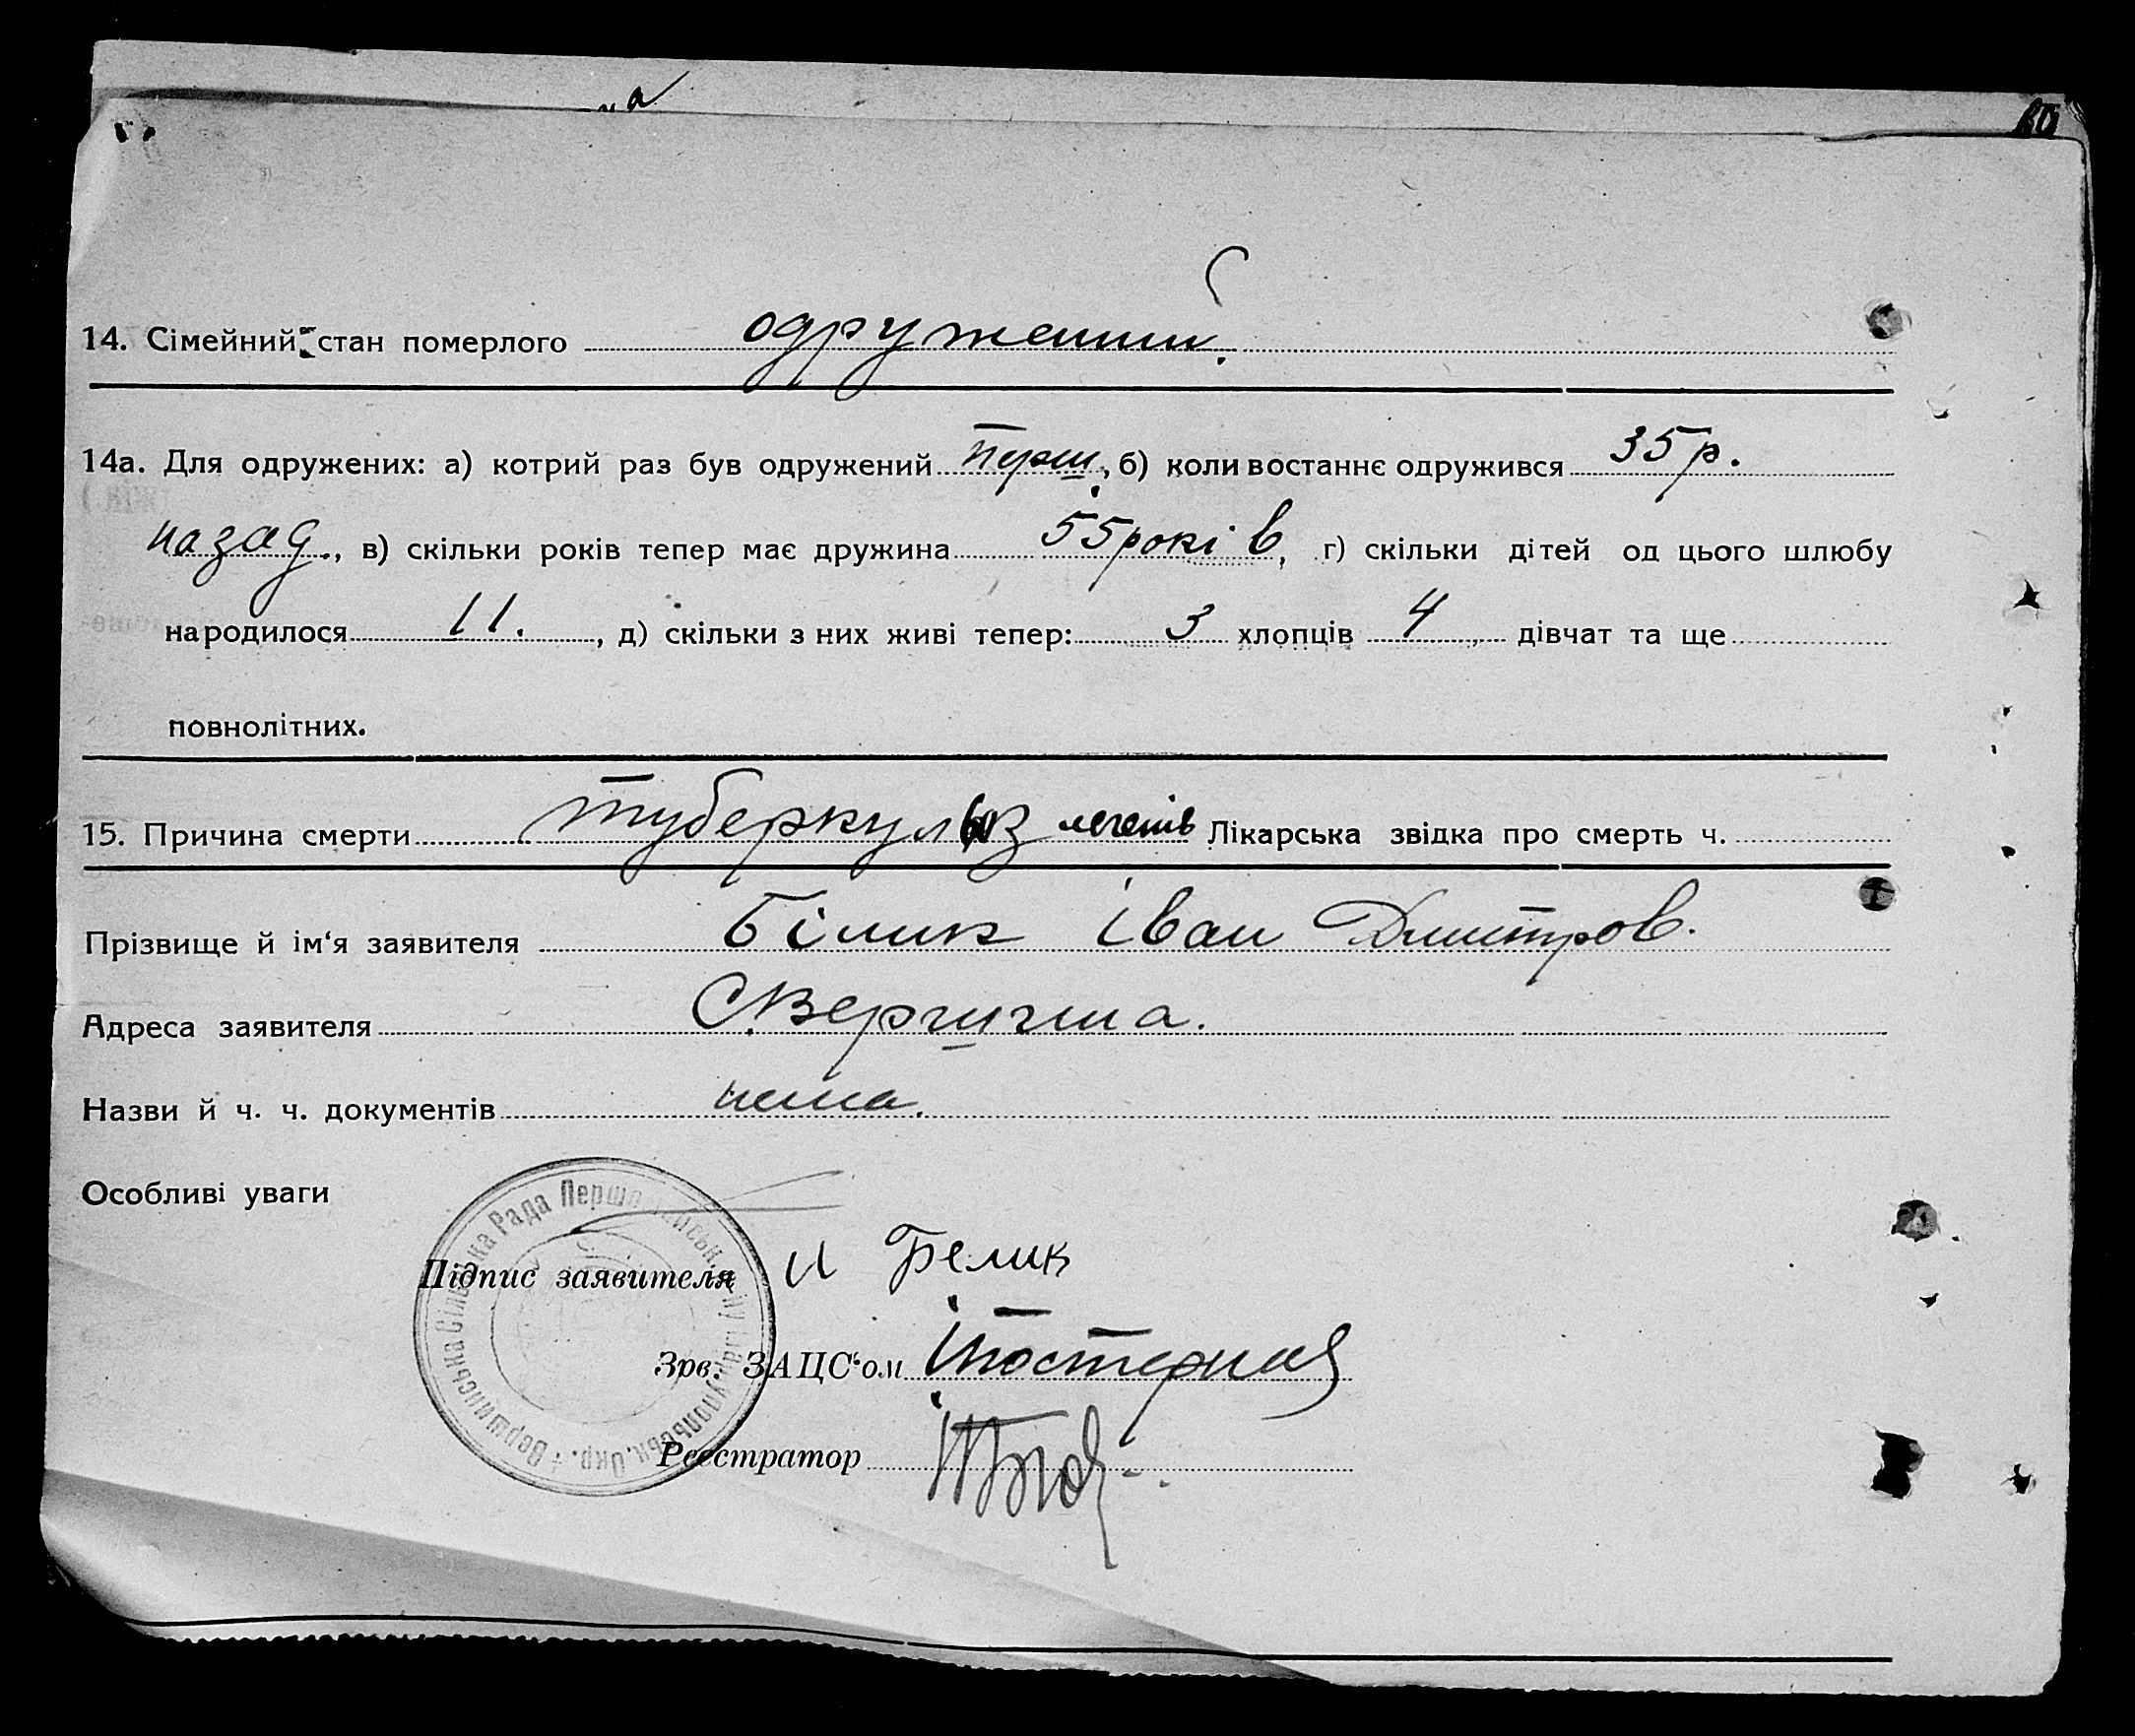 14. Сімейний стан померлого одружений.
14а. Для одружених: а) котрий раз був одружений перш, б) коли востаннє одружився 35 р.
назад., в) скільки років тепер має дружина 55 років, г) скільки дітей од цього шлюбу
народилося 11., д) скільки з них живі тепер: 3 хлопців 4 дівчат та ще
повнолітних.
15. Причина смерти туберкульоз легенів Лікарська звідка про смерть ч.
Прізвище й ім'я заявителя Білик Іван Дмитров.
Адреса заявителя
Назви й ч. ч. документів нема.
Особливі уваги
Вершинська Сільська Рада Окр.
Підпис заявителя И Белик
Зав. ЗАЦС'ом
Реєстратор